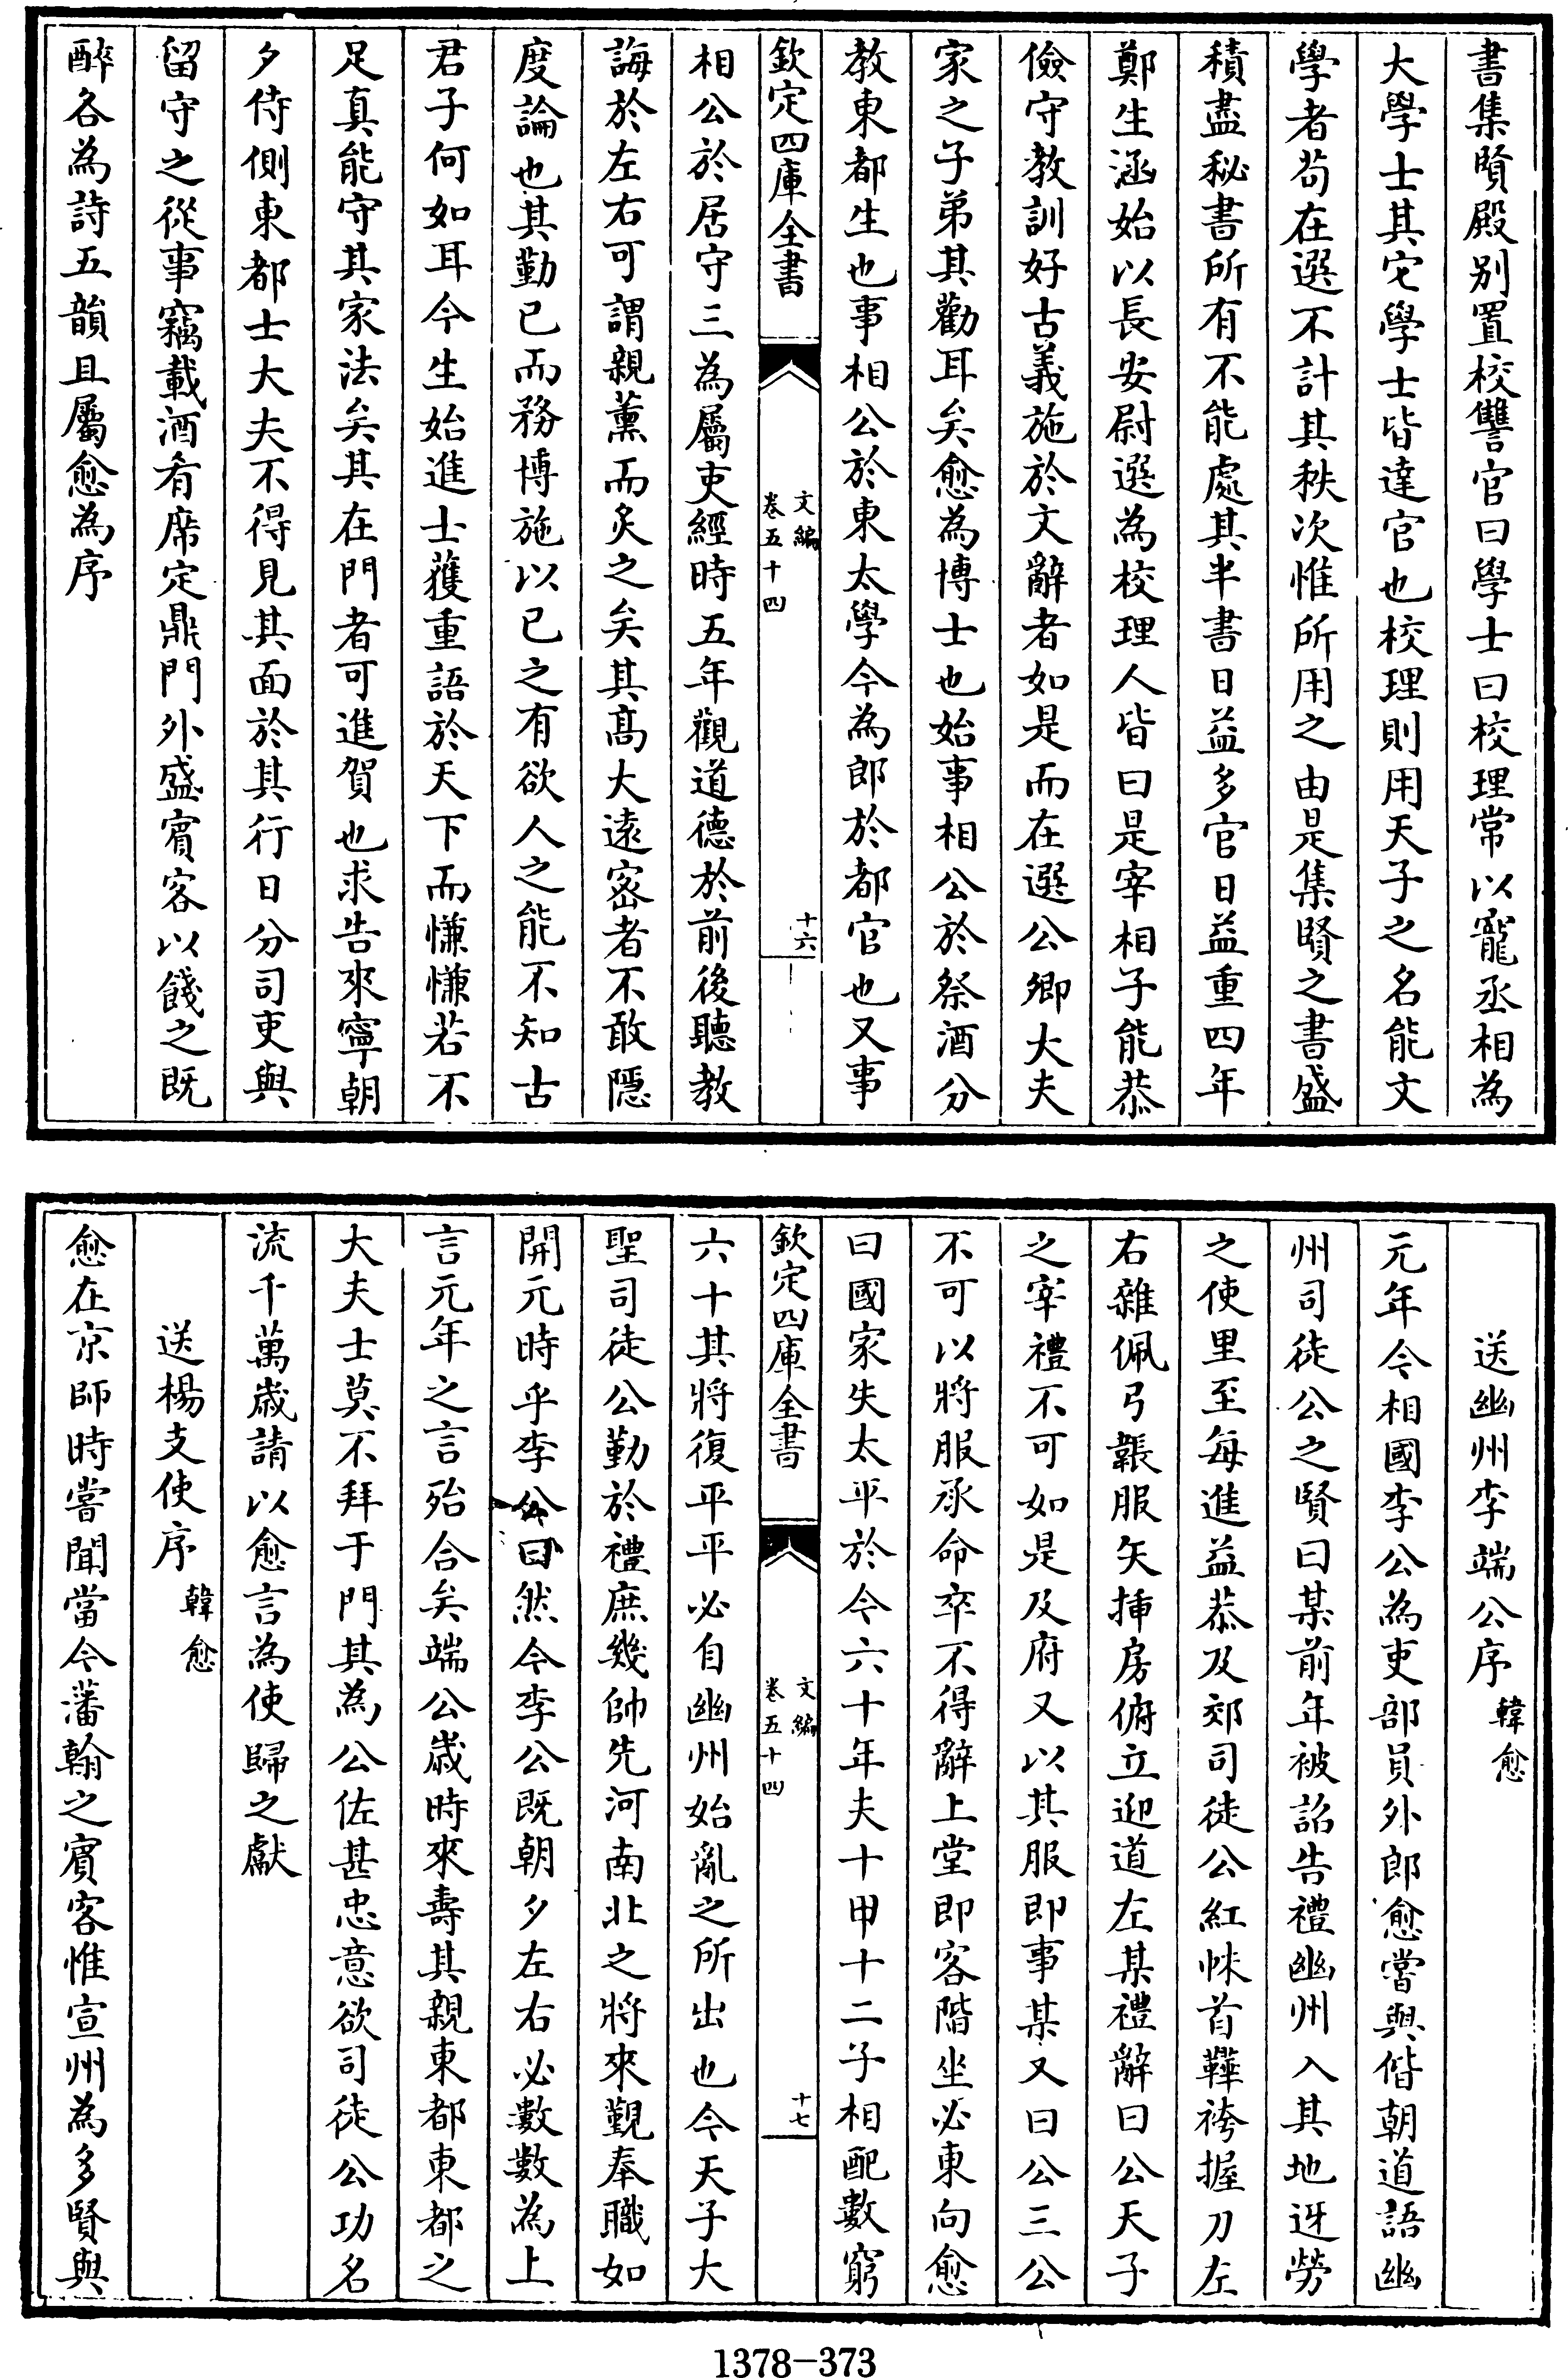 書集賢殿别置校讐官曰學士曰校理常以寵丞相為
大學士其宅學士皆達官也校理則用天子之名能文
學者茍在選不計其秩次惟所用之由是集賢之書盛
積盡秘書所有不能處其半書日益多官日益重四年
鄭生涵始以長安尉選為校理人皆曰是宰相子能恭
儉守教訓好古義施於文辭者如是而在選公卿大夫
家之子弟其勸耳矣愈為博士也始事相公於祭酒分
教東都生也事相公於東太學今為郎於都官也又事
欽定四庫全書
文編
卷五十四
十六
相公於居守三為屬吏經時五年觀道德於前後聽教
誨於左右可謂親薰而炙之矣其髙大逺宻者不敢隱
度論也其勤已而務博施以已之有欲人之能不知古
君子何如耳今生始進士獲重語於天下而慊慊若不
足真能守其家法矣其在門者可進賀也求告來寧朝
夕侍側東都士大夫不得見其面於其行日分司吏與
留守之從事竊載酒肴席定鼎門外盛賓客以餞之既
醉各為詩五韻且屬愈為序
送幽州李端公序
韓愈
元年今相國李公為吏部員外郎愈嘗與偕朝道語幽
州司徒公之賢曰某前年被詔告禮幽州入其地迓勞
之使里至每進益恭及郊司徒公紅帓首鞾袴握刀左
右雜佩弓韔服矢揷房俯立迎道左某禮辭曰公天子
之宰禮不可如是及府又以其服即事某又曰公三公
不可以將服承命卒不得辭上堂即客階坐必東向愈
曰國家失太平於今六十年夫十甲十二子相配數窮
欽定四庫全書
文編
卷五十四
十七
六十其將復平平必自幽州始亂之所出也今天子大
聖司徒公勤於禮庶幾帥先河南北之將來覲奉職如
開元時乎李公曰然今李公既朝夕左右必數數為上
言元年之言殆合矣端公歲時來壽其親東都東都之
大夫士莫不拜于門其為公佐甚忠意欲司徒公功名
流千萬歲請以愈言為使歸之獻
送楊支使序
韓愈
愈在京師時嘗聞當今藩翰之賓客惟宣州為多賢與
1378-373